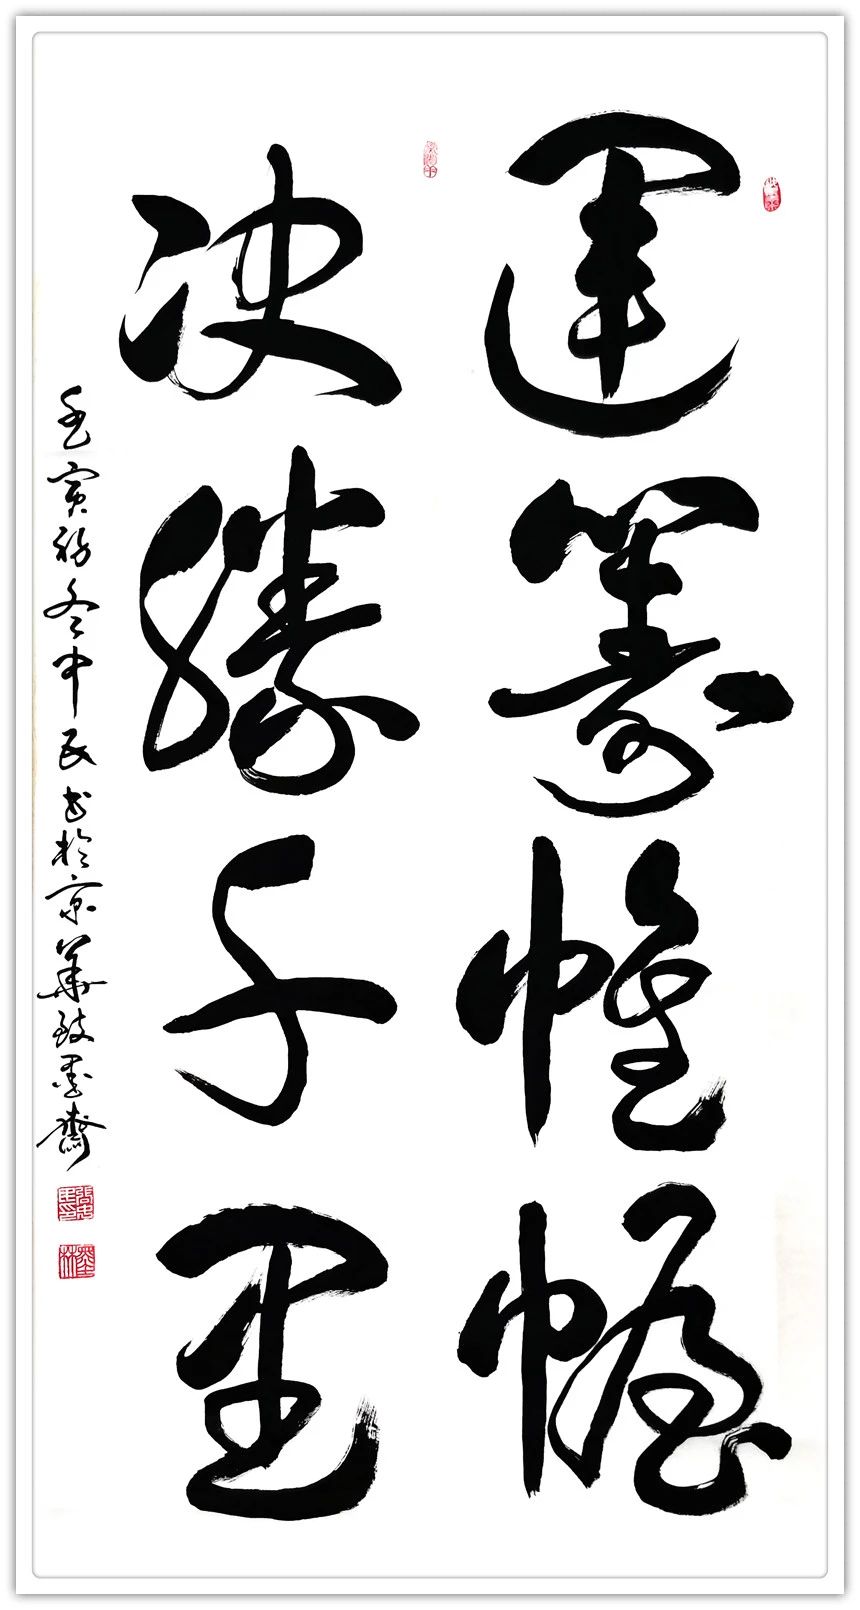 運籌帷幄
决勝千里
壬寅初冬中民书於京華致墨齋